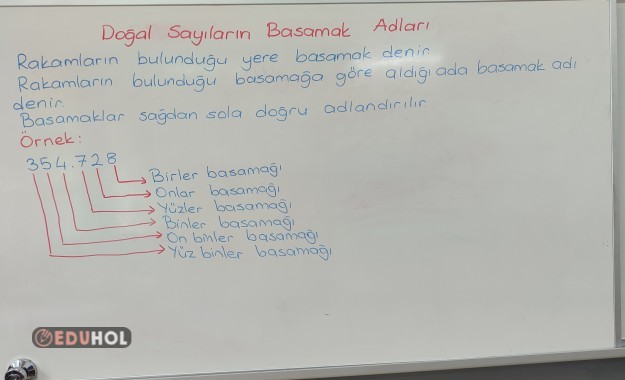 Doğal Sayıların Basamak Adları
Rakamların bulunduğu yere basamak denir.
Rakamların bulunduğu basamağa göre aldığı ada basamak adı
denir.
Basamaklar sağdan sola doğru adlandırılır.
Örnek:
354.728
Birler basamağı
Onlar basamağı
Yüzler basamağı
Binler basamağı
On binler basamağı
Yüz binler basamağı
EDUHOL